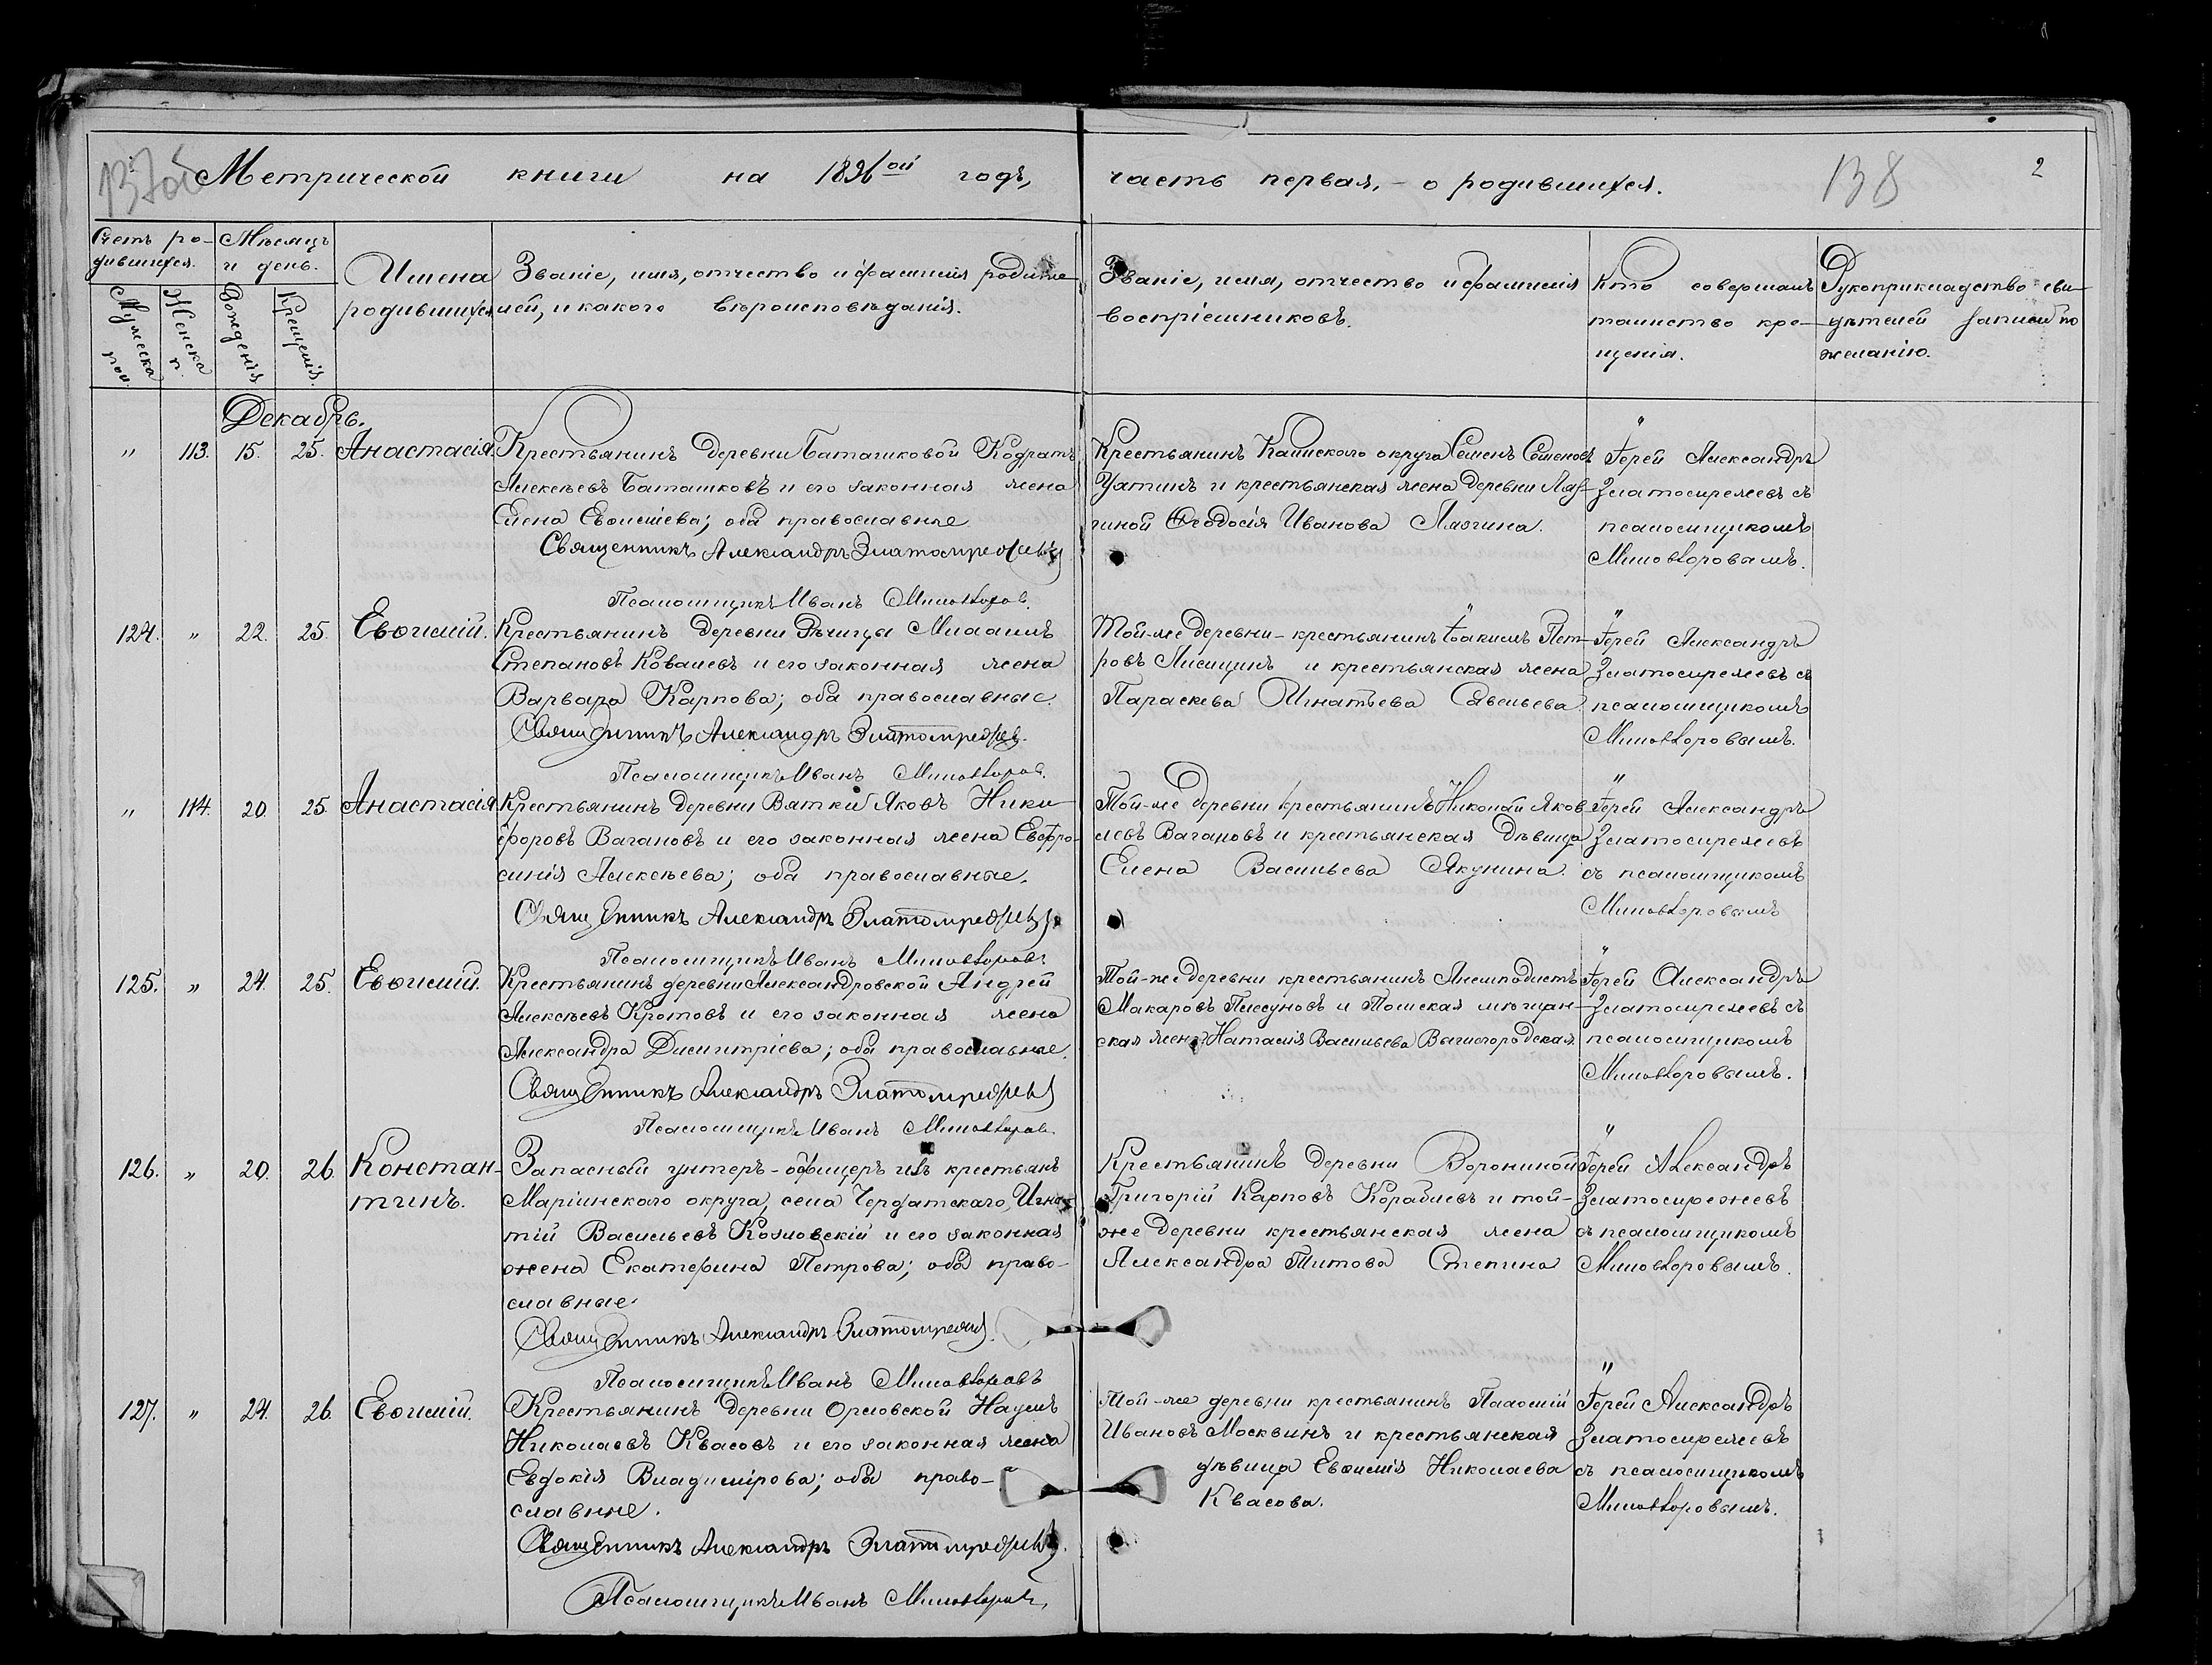 137об
Метрической книги на 1896ой годъ,
часть первая, - о родившихся.
138
2
Счетъ ро-
дившихся.
Мѣсяцъ
и день.
Мужеска
пол.
Женска
п.
Рожденія
Крещенія.
Имена
родившихся
Званіе, имя, отчество и фамилія родите-
лей, и какого вѣроисповѣданія.
Званіе, имя, отчество и фамилія
воспріемниковъ.
Кто совершалъ
таинство кре-
щенія.
Рукоприкладство сви-
дѣтелей записи по
желанію.
Декабрь.
" 113. 15. 25. Анастасія
Крестьянинъ деревни Баташковой Кодратъ
Алексѣевъ Баташковъ и его законная жена
Елена Евѳиміева; оба православные
Священникъ Александръ Златомрежевъ
Псаломщикъ Иванъ Миловзоров.
Крестьянинъ Каинского округа Семенъ Семеновъ
Утинъ и крестьянская жена деревни Ляз-
гиной Ѳеодосія Иванова Лазгина.
Іерей Александръ
Златомрежевъ съ
псаломщикомъ
Миловзоровымъ.
124. " 22. 25. Евѳимій.
Крестьянинъ деревни Рѣчицы Михаилъ
Степановъ Ковалевъ и его законная жена
Варвара Карпова; оба православные.
Священникъ Александръ Златомрежев.
Псаломщикъ Иванъ Миловзоров.
Той-же деревни - крестьянинъ Іакимъ Пет-
ровъ Лисицинъ и крестьянская жена
Параскева Игнатьева Савельева
Іерей Александръ
Златомрежевъ съ
псаломщикомъ
Миловзоровымъ.
" 114. 20. 25 Анастасія
Крестьянинъ деревни Вятки Яковъ Ники-
форовъ Вагановъ и его законная жена Евфро-
синія Алексѣева; оба православные.
Священникъ Александръ Златомрежевъ
Псаломщикъ Иванъ Миловзоровъ
Той-же деревни крестьянинъ Николай Яков-
левъ Вагановъ и крестьянская дѣвица
Елена Васильева Якунина.
Іерей Александръ
Златомрежевъ
съ псаломщикомъ
Миловзоровымъ
125. " 24. 25. Евѳимій.
Крестьянинъ деревни Александровской Андрей
Алексѣевъ Кротовъ и его законная жена
Александра Димитріева; оба православные.
Священникъ Александръ Златомрежевъ
Псаломщикъ Иванъ Миловзоров
Той-же деревни крестьянинъ Анемподистъ
Макаровъ Плесуновъ и Томская мѣщан-
ская жена Наталія Васильева Вышегородская
Іерей Александръ
Златомрежевъ съ
псаломщикомъ
Миловзоровымъ.
126. " 20. 26. Констан-
тинъ.
Запасный унтеръ-офицеръ изъ крестьянъ
Маріинского округа, села Чердатского, Игна-
тій Васильевъ Козловскій и его законная
жена Екатерина Петрова; оба право-
славные.
Священникъ Александръ Златомрежев.
Псаломщикъ Иванъ Миловзоровъ
Крестьянинъ деревни Ворониной
Григорій Карповъ Кораблевъ и той-
же деревни крестьянская жена
Александра Титова Степина
Іерей Александръ
Златомрежевъ
съ псаломщикомъ
Миловзоровымъ.
127. " 24. 26. Евѳимій.
Крестьянинъ деревни Орловской Наумъ
Николаевъ Квасовъ и его законная жена
Евдокія Владимірова; оба право-
славные.
Священникъ Александръ Златомрежевъ.
Псаломщикъ Иванъ Миловзоровъ.
Той-же деревни крестьянинъ
Ивановъ Москвинъ и крестьянская
дѣвица Евѳимія Николаева
Квасова.
Іерей Александръ
Златомрежевъ
съ псаломщикомъ
Миловзоровымъ.